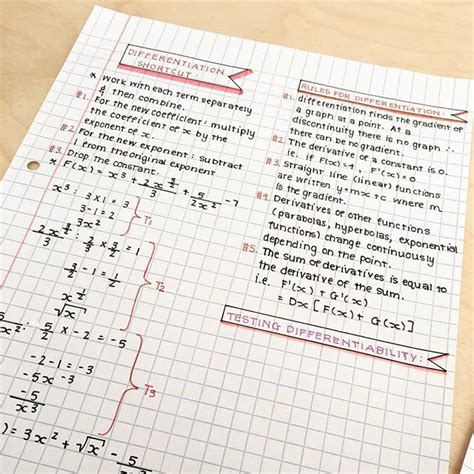 DIFFERENTIATION
SHORTCUT:
* Work with each term separately
& then combine.
#1. For the new coefficient: multiply
the coefficient of x by the
exponent of x.
#2. For the new exponent: subtract
1 from the original exponent
#3. Drop the constant.
* F(x) = x³ + 2x^(3/2)/3 + 5/(2x²) - 7
x³: 3 x 1 = 3
3 - 1 = 2
3x²
T₁
2x^(3/2)/3 : 2/3 x 3/2 = 1
3/2 - 1 = 1/2
x^(1/2)
√x
T₂
5/2 x -2 = -5
-2 - 1 = -3
-5x⁻³
-5/x³
T₃
) = 3x² + √x - 5/x³
RULES FOR DIFFERENTIATION:
#1. differentiation finds the gradient of
a graph at a point. At a
discontinuity there is no graph ∴
there can be no gradient.
#2. The derivative of a constant is 0.
i.e. if F(x) = 1, F'(x) = 0
#3. Straight line (linear) functions
are written y = mx + c where m
is the gradient.
#4. Derivatives of other functions
(parabolas, hyperbolas, exponential
functions) change continuously
depending on the point.
#5. The sum of derivatives is equal to
the derivative of the sum.
i.e. F'(x) + G'(x)
= Dx [F(x) + G(x)]
TESTING DIFFERENTIABILITY: